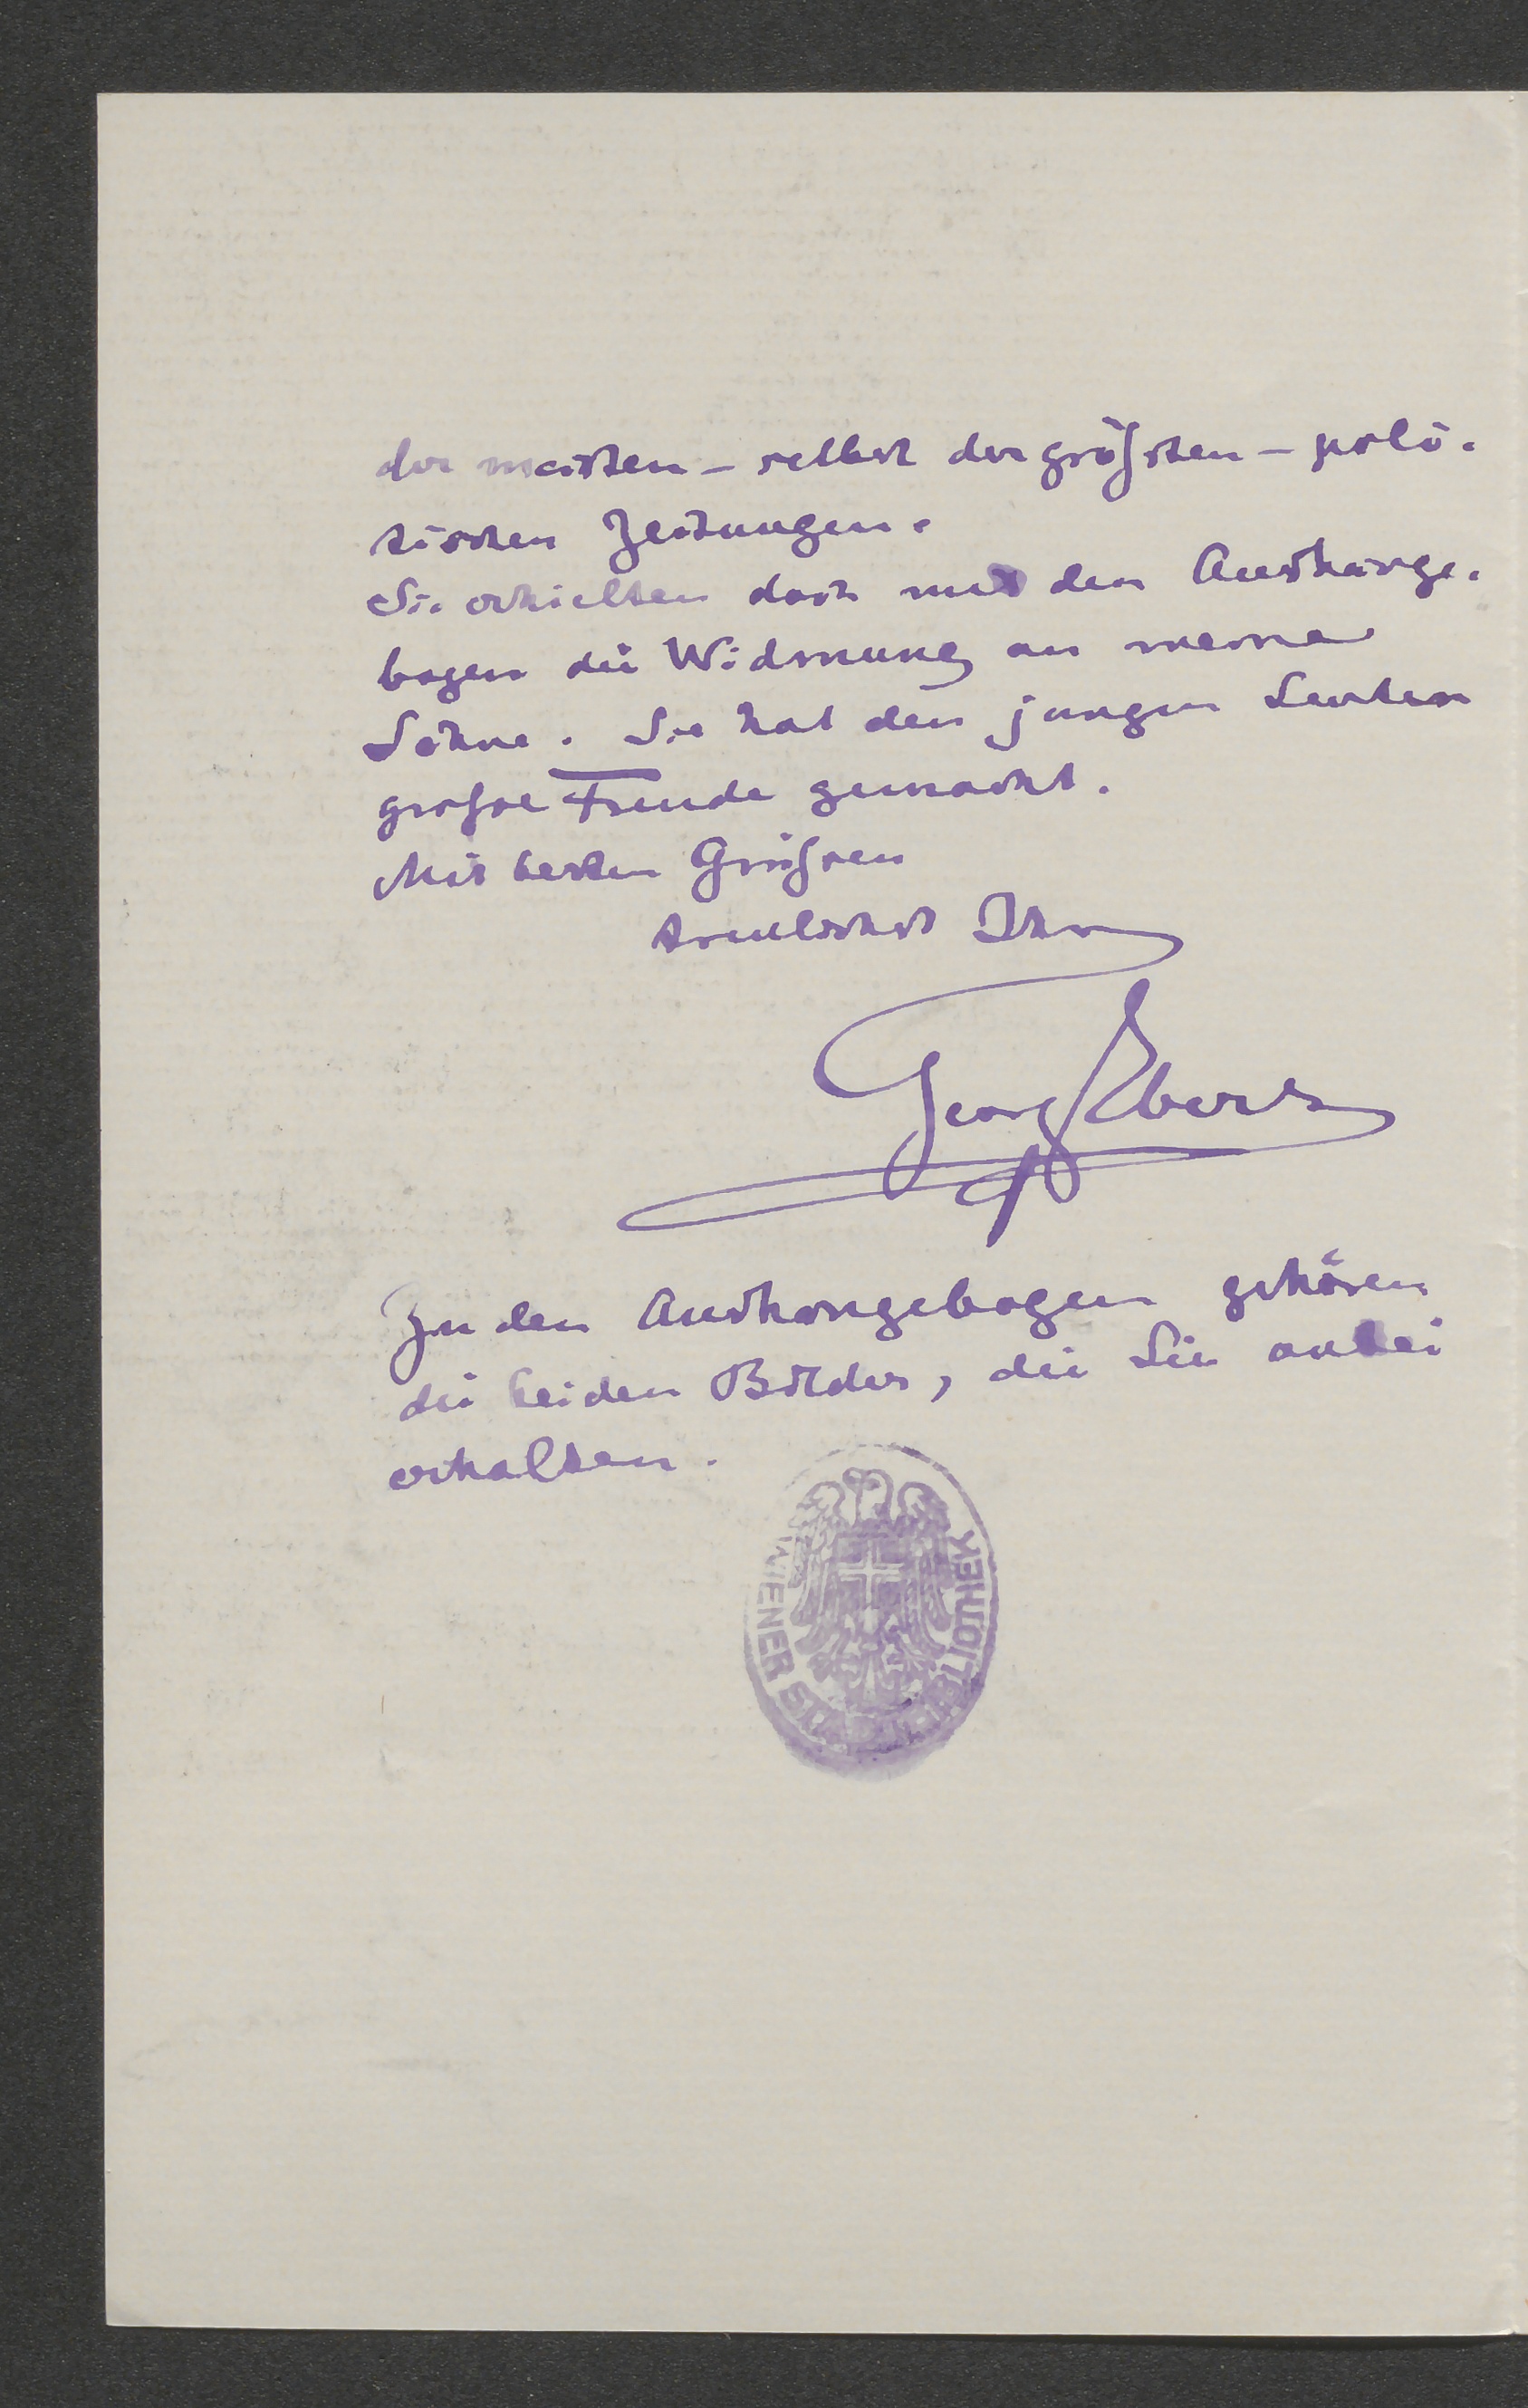 der meisten – selbst der größsten – poli-
tischen Zeitungen.
Sie erhielten doch mit den Aushänge-
bogen die Widmung an meine
Söhne. Sie hat den jungen Leuten
großse Freude gemacht.
Mit besten Grüßsen
treulichst Ihr
Georg Ebers
Zu den Aushängebogen gehören
die beiden Bilder, die Sie anbei
erhalten.
WIENER STADTBIBLIOTHEK